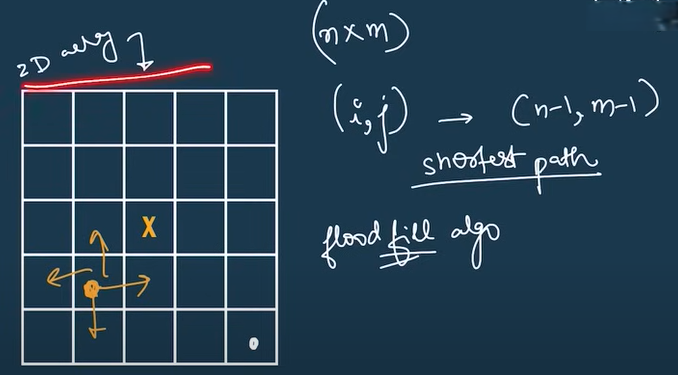 2D array
(n x m)
(i, j) → (n-1, m-1)
shortest path
X
flood fill algo
0